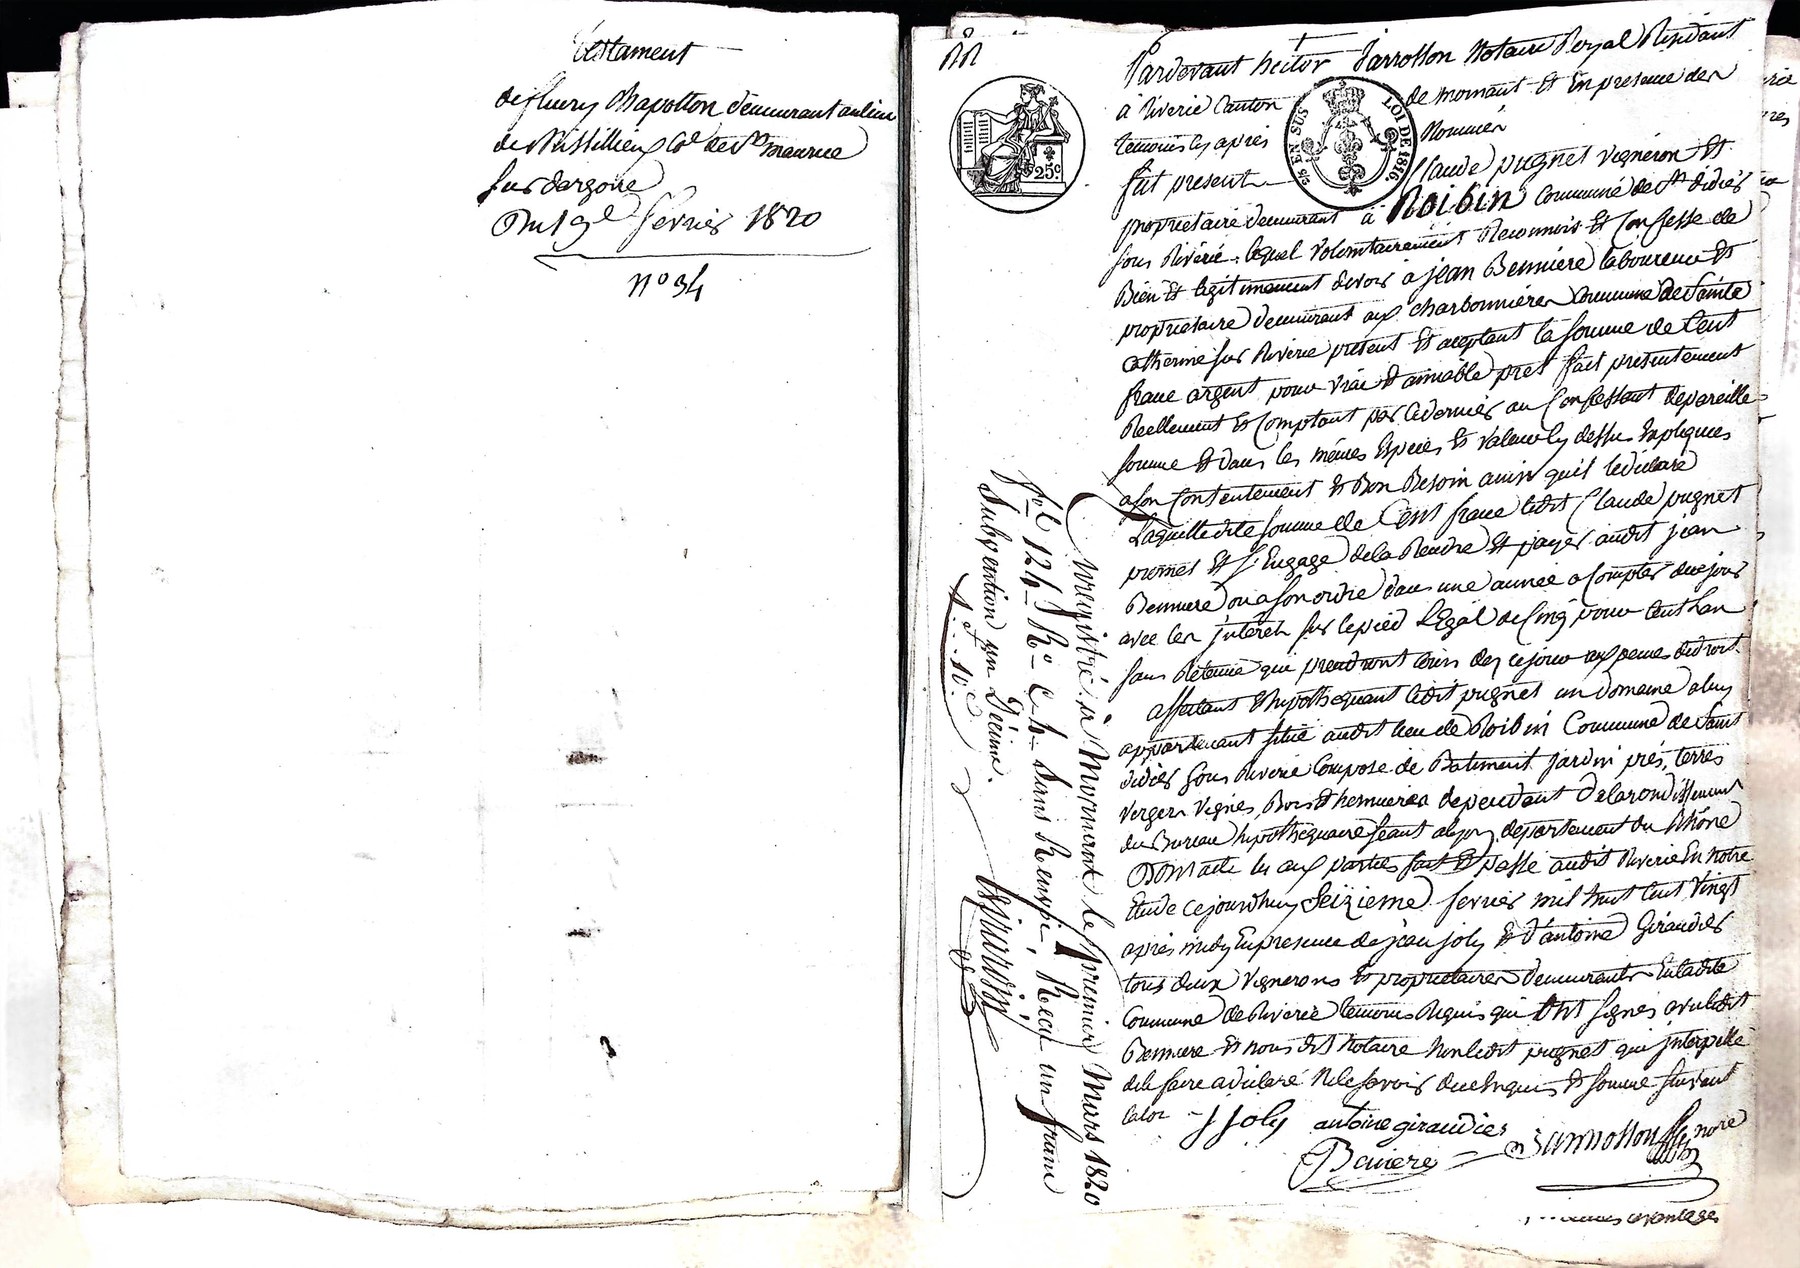 Testament
de fleury Chapotton demeurant au lieu
de Cne de St maurice
sur dargoire
Du 19e fevrier 1820
n° 34
Pardevant hector Jarrosson Notaire Royal Résidant
à Riverie Canton de mornant Et En presence des
temoins cy après Nommés
25c
EN SUS
LOI DE 1816.
fut present Claude pugnet vigneron Et
propriétaire demeurant à Roibin Commune de St didier
sous Riverie, lequel volontairement Reconnoit Et Confesse de
Bien Et legitimement devoir à jean Benniere laboureur Et
propriétaire demeurant aux charbonnières Commune de Sainte
Catherine sur Riverie present Et aceptant la somme de Cent
franc argent pour vrai Et aimable pret fait presentement
Reellement Et Comptant par Cedernier au Confessant depareille
somme Et dans les mêmes Especes Et valeur cy dessus Expliquées
a son Contentement Et Bon Besoin ainsi quil ledeclare
Laquelle dite somme de Cent franc ledit Claude pugnet
promet Et S'Engage de la Rendre Et payer audit jean
Benniere ou a son ordre dans une année a Compter de ce jour
avec les jntérêts sur lepied Légal de Cinq pour Cent L'an
sans Retenue qui prendront Cours des cejour aux peines de droit.
affectant Et hypothequant ledit pugnet un domaine a luy
appartenant situé audit lieu de Roibin Commune de Saint
didier sous Riverie Composé de Batiment jardin prés, terres
vergers vignes, Bois Et hermieres dependant Delarondissement
du Bureau hypothequaire séant alyon, departement du Rhône
Dont acte lu aux parties fait Et passé audit Riverie En notre
Etude cejourdhuy Seizieme fevrier mil huit Cent vingt
après midy En presence de jean joly Et d'antoine Giraudier
tous deux vignerons Et propriétaires demeurants En ladite
Commune de Riverie temoins Requis qui ont signés avec ledit
Benniere Et nous dit Notaire Non ledit pugnet qui jnterpellé
de le faire a declaré Ne le savoir de ce Enquis Et sommé suivant
la loi
J Joly antoine giraudier Jarrosson nore
Baniere
Enregistré à Mornant le premier Mars 1820
fol 124 Ro C 4 Sans Renvoi; Recu un franc
Subvention un Décime.
1f 10c